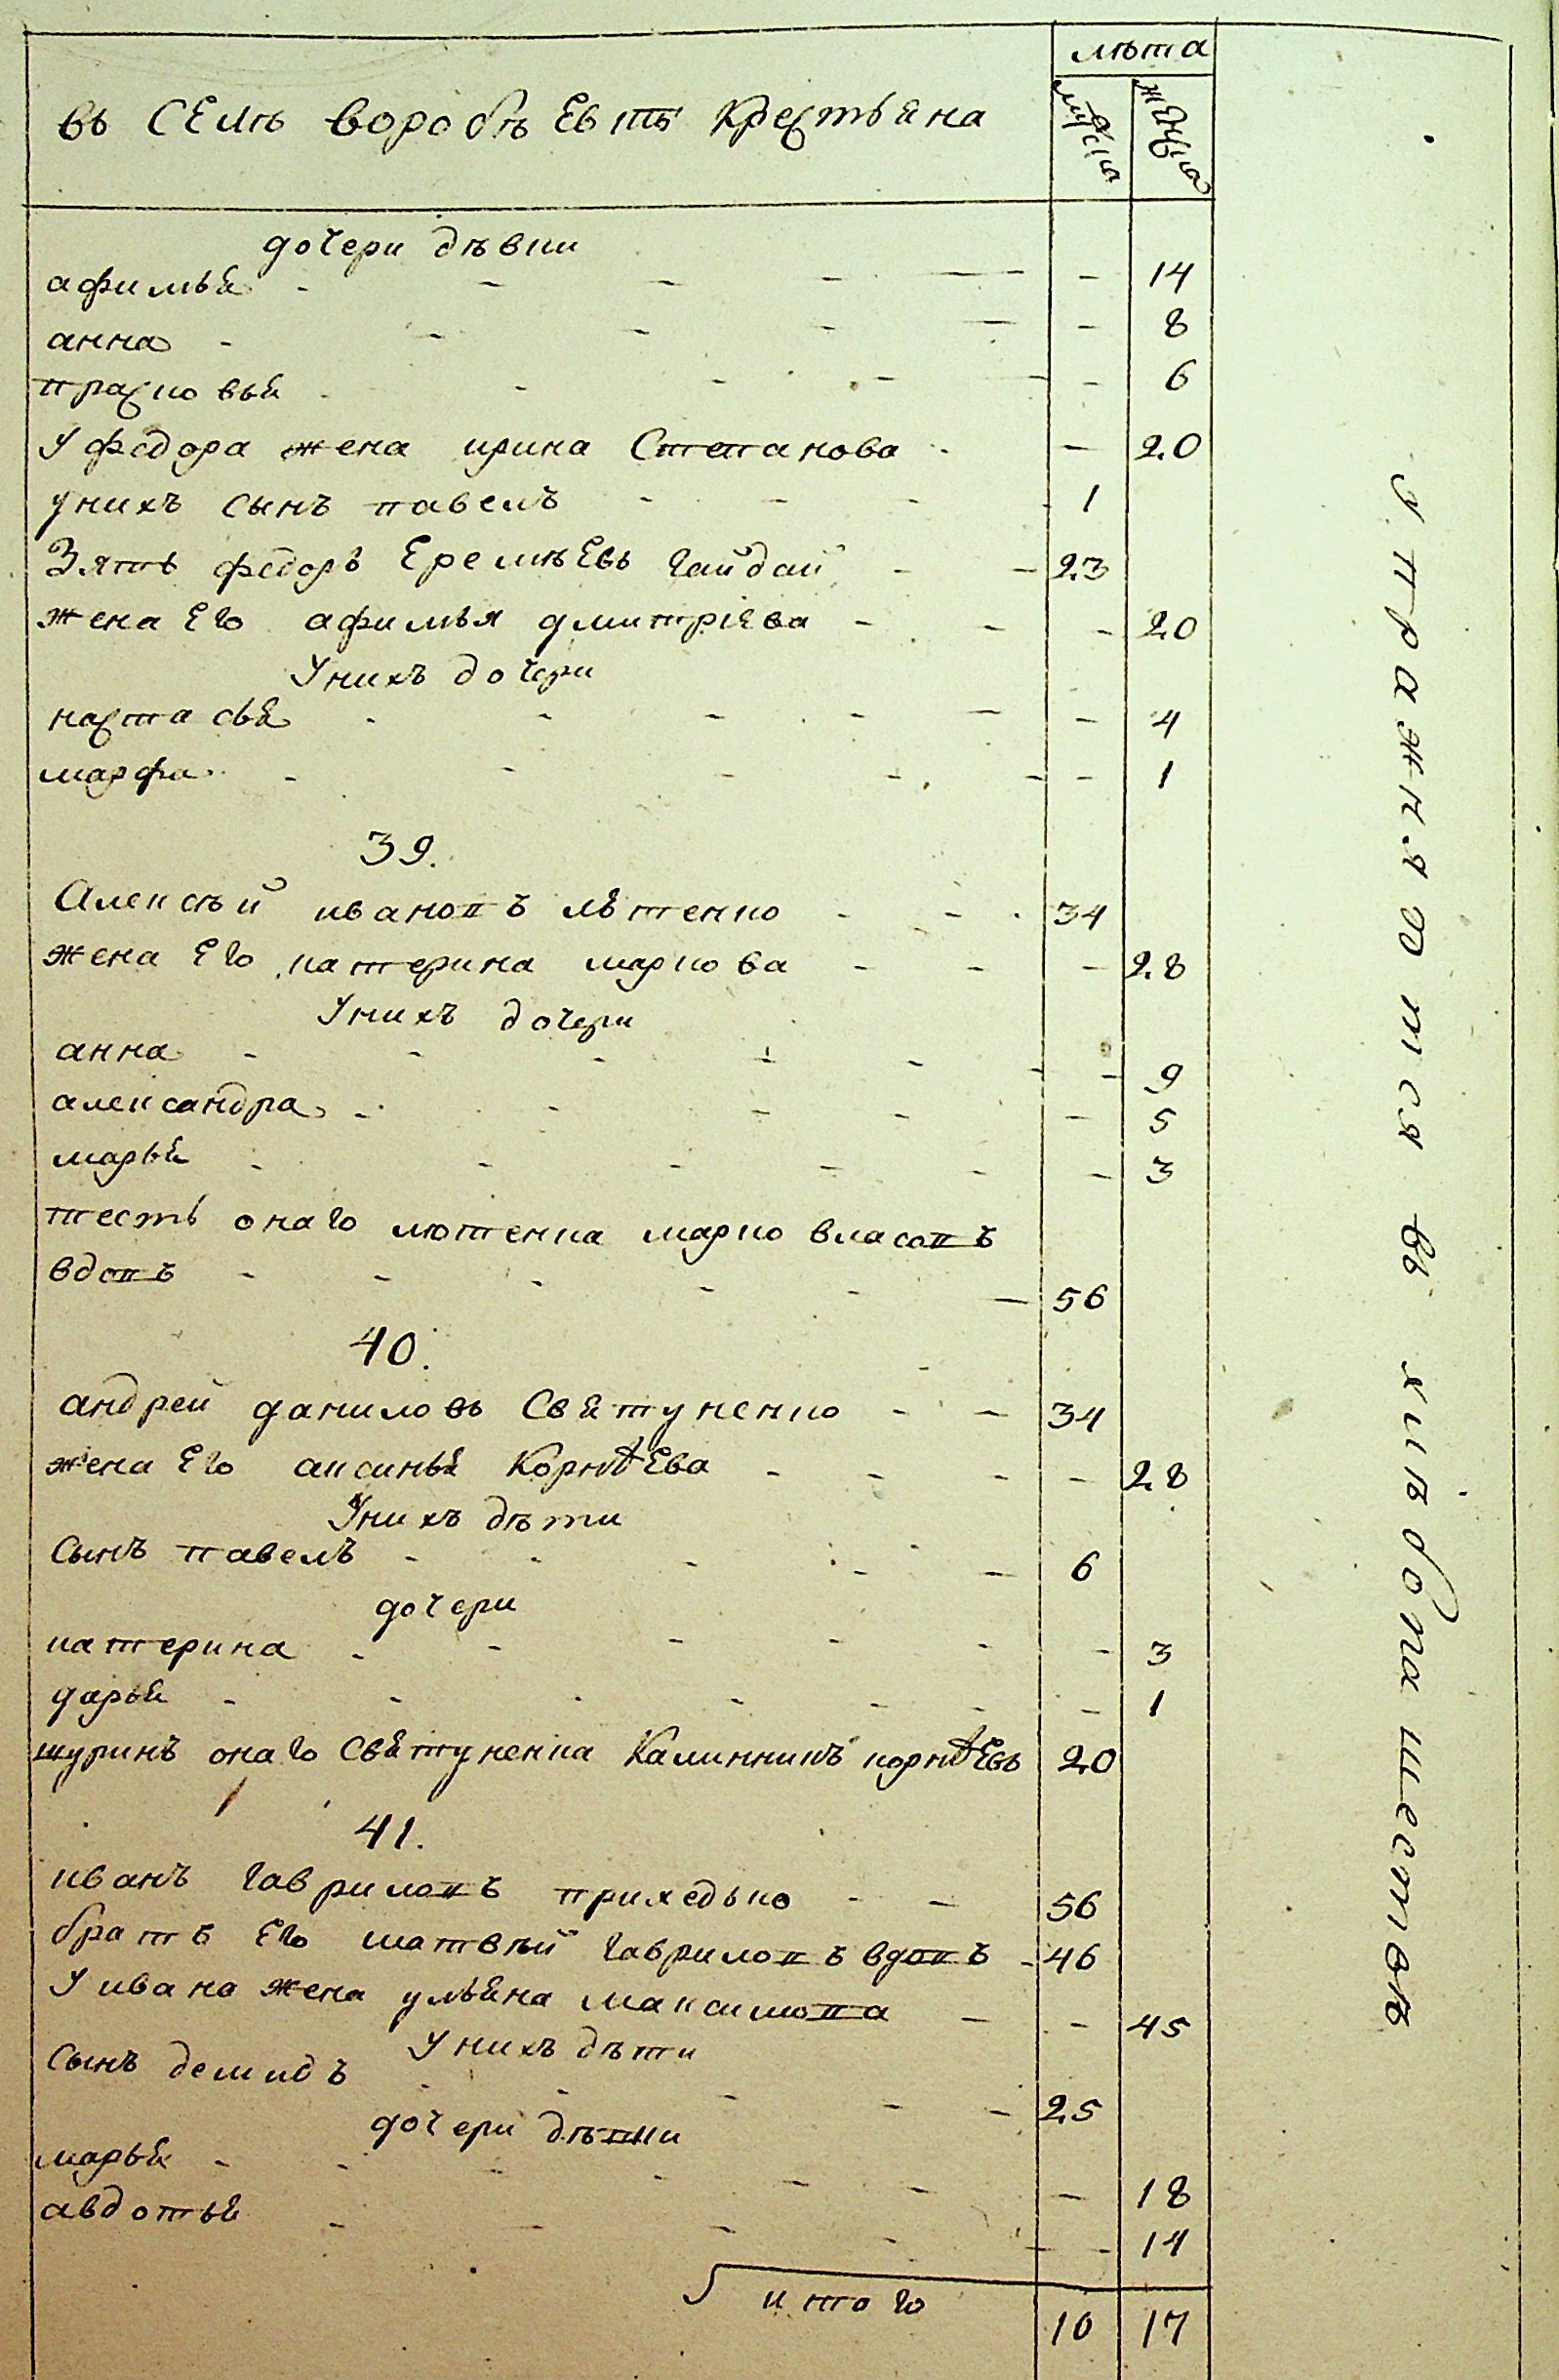 лѣта
въ селѣ воробьевѣ крестьяна
мужеска
женска
дочери дѣвки
афимья - - - - - - 14
анна - - - - - - 8
прасковья - - - - - - 6
у федора жена ирина Степанова - - 20
у нихъ сынъ павелъ - - - - 1
Зять федоръ Еремѣевъ гайдай - - 23
жена Его афимья дмитрiева - - - 20
У нихъ дочери
настасья - - - - - - 4
марфа - - - - - - 1
39.
Алексѣй ивановъ лютенко - - - 34
жена Его катерина маркова - - - 28
У нихъ дочери
анна - - - - - - - 9
александра - - - - - 5
марья - - - - - - 3
тесть онаго лютенка марко власовъ
вдовъ - - - - - - 56
40.
андрей даниловъ Святуненко - - 34
жена Его аксинья Корнѣева - - - - 28
У нихъ дѣти
Сынъ павелъ - - - - - 6
дочери
катерина - - - - - - 3
дарья - - - - - - - 1
шуринъ онаго Святуненка Калинникъ корнѣевъ 20
41.
иванъ гавриловъ приходько - - 56
братъ Его матвѣй гавриловъ вдовъ - 46
У ивана жена ульяна максимова - - 45
У нихъ дѣти
Сынъ демидъ - - - - - 25
дочери дѣвки
марья - - - - - - - 18
авдотья - - - - - - 14
итого 10 17
упражняются въ хлѣбопашествѣ